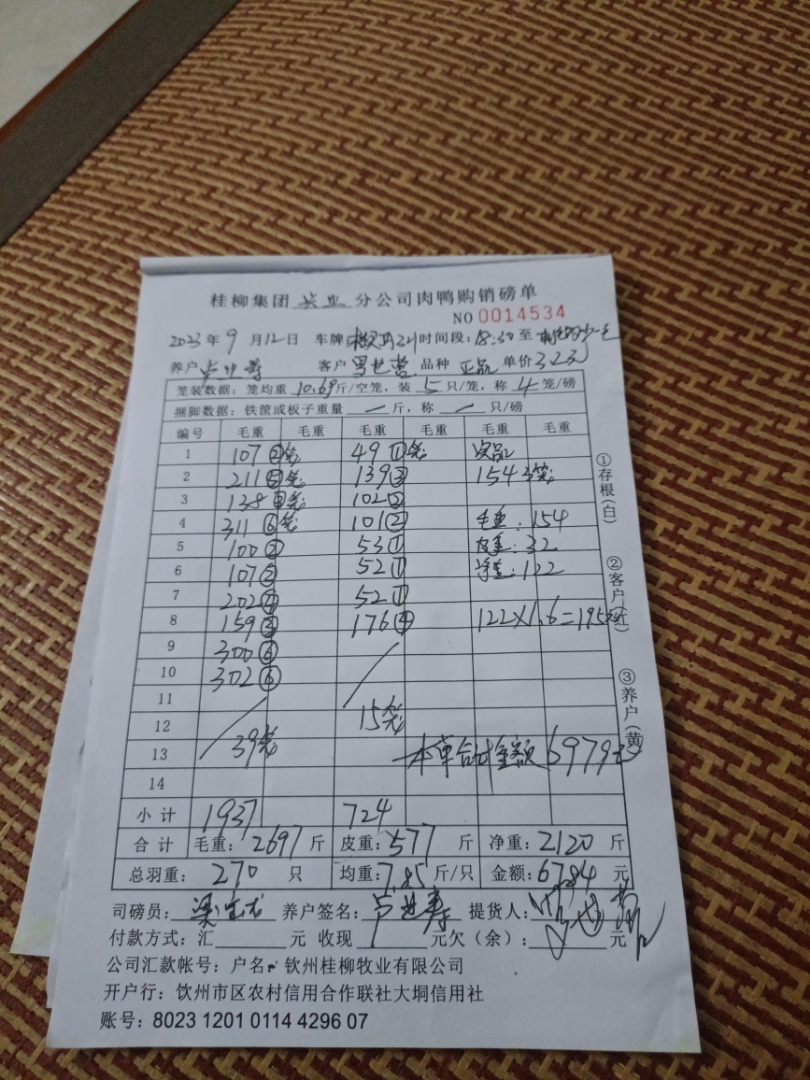 桂柳集团 兴业 分公司肉鸭购销磅单
NO 0014534
2023年9月12日 车牌 时间段：18:30至
养户 客户 品种 正品 单价3.2元
笼装数据：笼均重 10.69斤/空笼，装 5 只/笼，称 4 笼/磅
捆脚数据：铁筐或板子重量 一 斤，称 一 只/磅
编号 毛重 毛重 毛重 毛重 毛重 毛重
1 107②笼 49①笼 次品
2 211⑤笼 139③ 154 3笼
3 138 笼 102②
4 311⑥笼 101② 毛重：154
5 100② 53① 皮重：32
6 107② 52① 净重：122
7 202④ 52①
8 159③ 176④ 122×1.6=195
9 300⑥
10 302⑥
11
12 15笼
13 39笼 本单合计金额 6979元
14
小计 1937 724
合计 毛重：2697斤 皮重：577斤 净重：2120斤
总羽重：270只 均重：7.85斤/只 金额：6784元
司磅员： 养户签名： 提货人：
付款方式：汇 元 收现 元欠（余）： 元
公司汇款帐号：户名：钦州桂柳牧业有限公司
开户行：饮州市区农村信用合作联社大垌信用社
账号：8023 1201 0114 4296 07
①存根(白)
②客户(红)
③养户(黄)